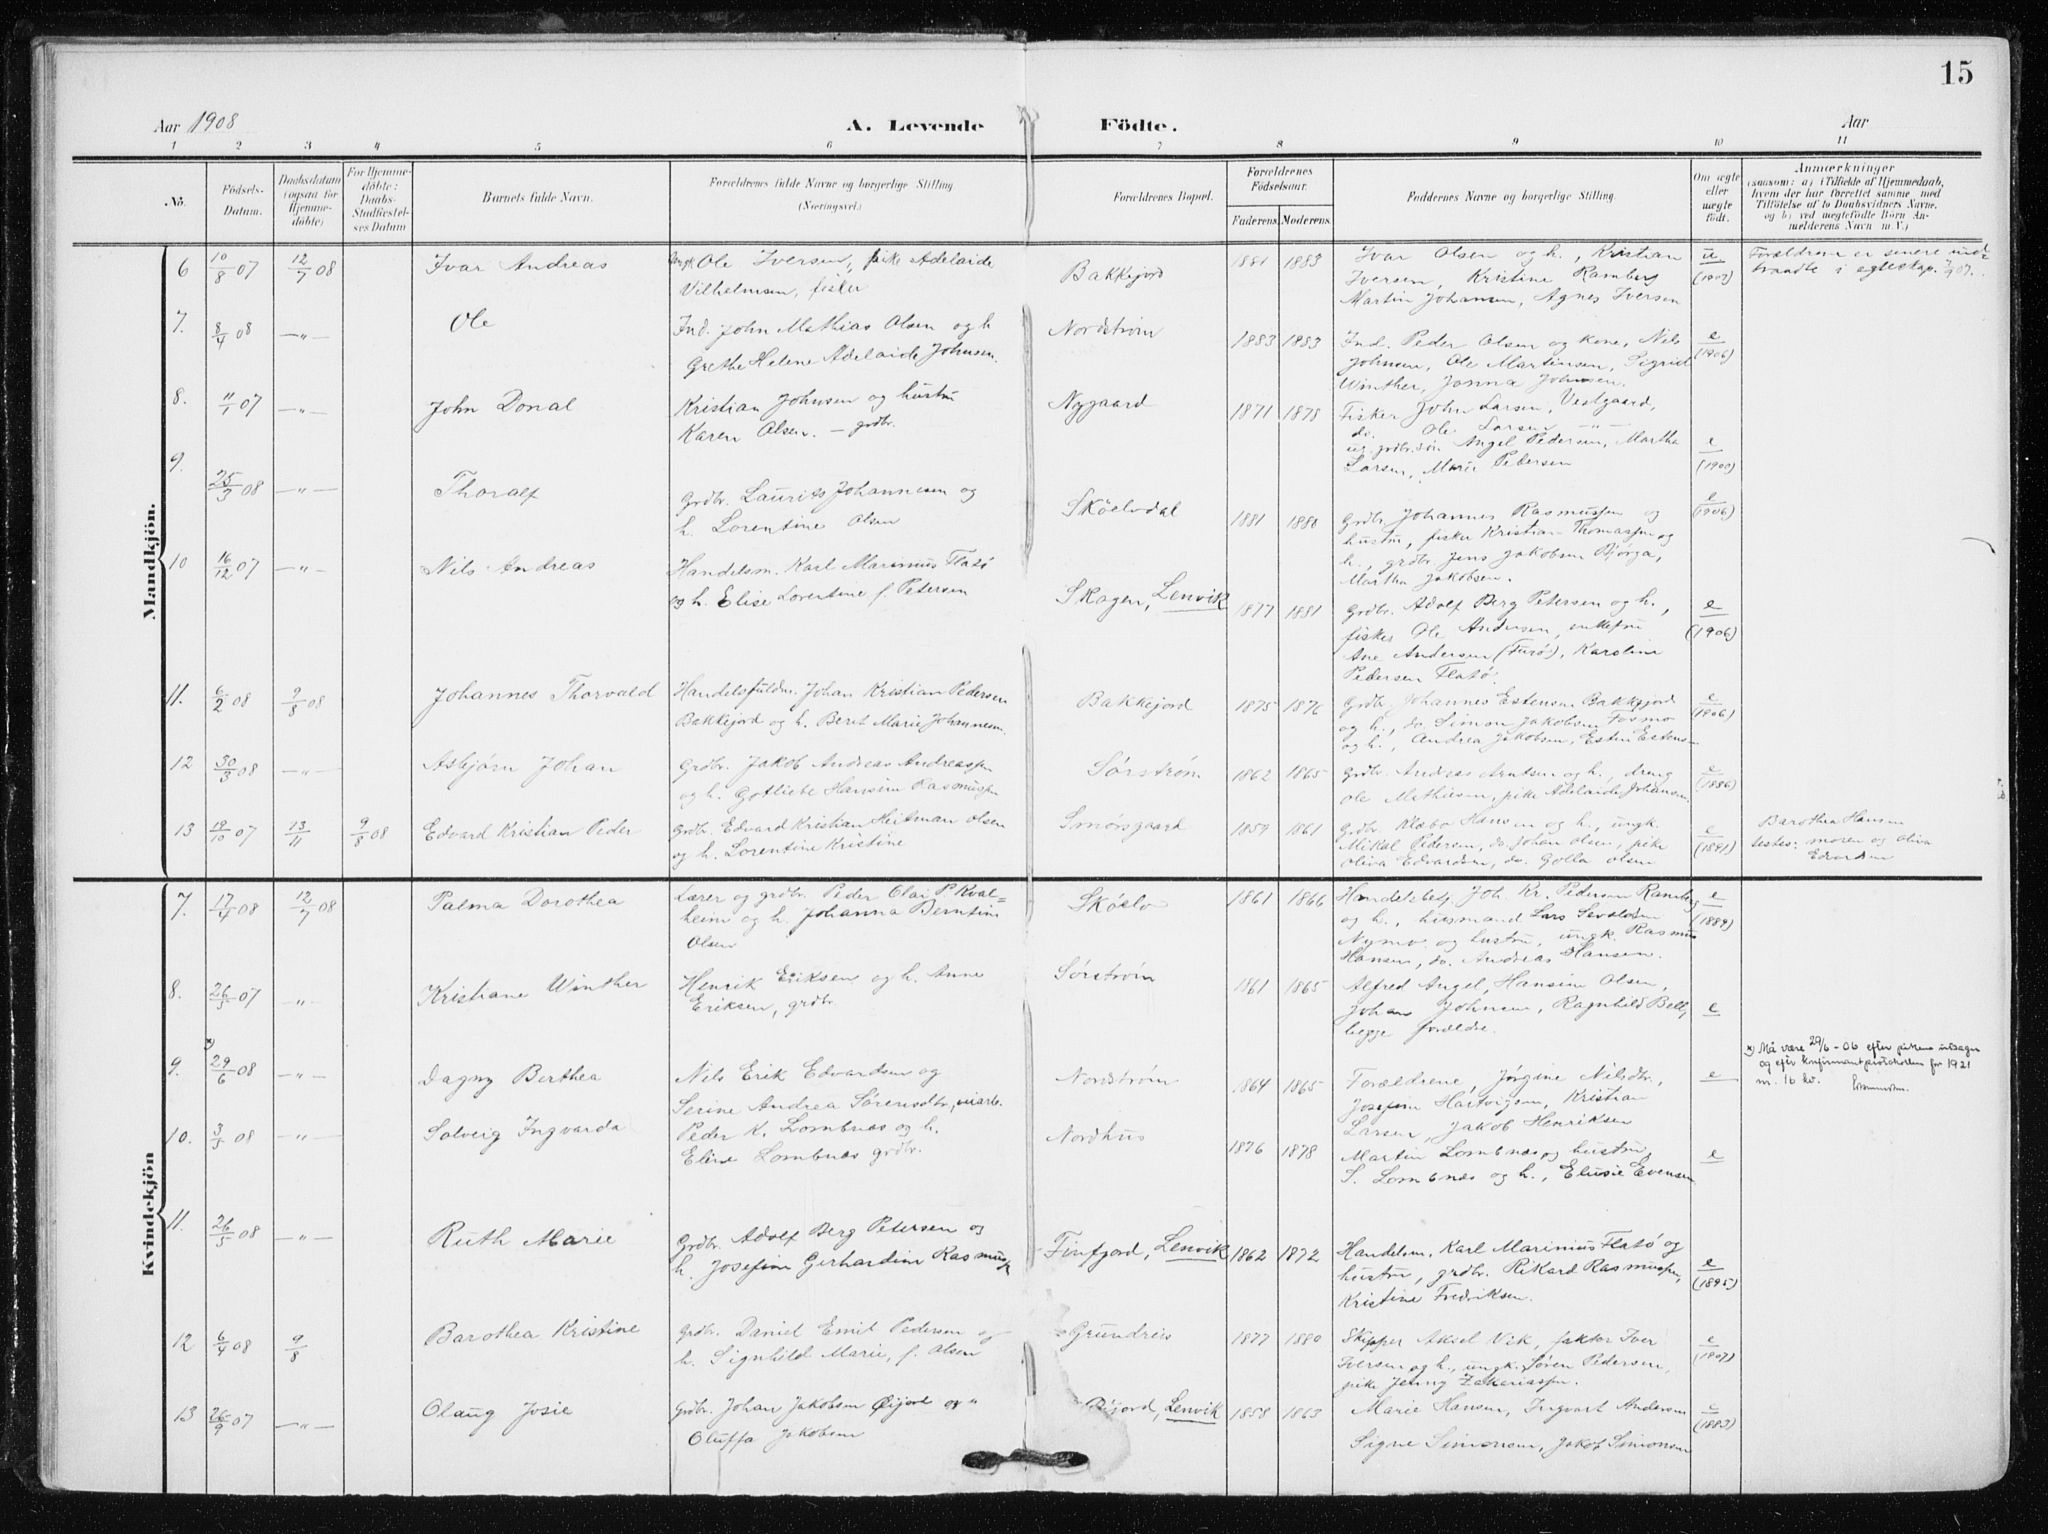 15
Aar 1908
A. Levende Födte.
Aar
1 2 3 4 5 6 7 8 9 10 11
No.
Födsels-Datum.
Daabsdatum (ogsaa for Hjemme-döbte)
For Hjemme-döbte: Daabs-Stadfæstel-ses Datum
Barnets fulde Navn.
Forældrenes fulde Navne og borgerlige Stilling (Næringsvei.)
Forældrenes Bopæl.
Forældrenes Födselsaar.
Faderens. Moderens.
Faddernes Navne og borgerlige Stilling.
Om ægte eller uægte födt.
Anmærkninger
(saasom: a) i Tilfælde af Hjemmedaab,
hvem der har forrettet samme med
Tilföielse af to Daabsvidners Navne,
og b) ved uegtefödte Börn An-
melderens Navn m. V.)
Mandkjön.
6 10/8 07 12/7 08 Ivar Andreas
Ungk. Ole Iversen, pike Adelaide
Vilhelmsen, fisker
Bakkejord 1881 1883
Ivar Olsen og h., Kristian
Iversen, Kristine Ramberg
Martin Johansen, Agnes Iversen
u (1907)
Forældrene er senere ind
traadte i egteskap
7. 8/4 08 —"— Ole
Ind. John Mathias Olsen og h
Grethe Helene Adelaide Johnsen.
Nordstrøm 1883 1883
Ind. Peder Olsen og kone, Nils
Johnsen, Ole Martinsen, Sigrid
Winther, Jonna Johnsen.
e (1906)
8. 11/1 07 —"— John Donal
Kristian Johnsen og hustru
Karen Olsen. — grdbr.
Nygaard 1871 1878
Fisker John Larsen, Vestgaard,
do. Ole Larsen —"—
ug. grdbr.søn Angel Pedersen, Martha
Larsen, Marie Petersen
e (1900)
9. 25/3 08 —"— Thoralf
Grdbr. Laurits Johannesen og
h. Lorentine Olsen
Sköelvdal 1881 1880
Grdbr. Johannes Rasmussen og
hustru, fisker Kristian Thomassen og
h., grdbr. Jens Jakobsen Bjørga,
Martha Jakobsen.
e (1906)
10 16/12 07 —"— Nils Andreas
Handelsm. Karl Marinius Flatö
og h. Elise Lorentine f. Petersen
Skogen, Lenvik 1877 1881
Grdbr. Adolf Berg Petersen og h.,
fisker Ole Andersen, enkefru
Ane Andersen (Furö), Karoline
Pedersen Flatö.
e (1906)
11. 6/2 08 9/8 08 Johannes Thorvald
Handelsfuldm. Johan Kristian Pedersen
Bakkejord og h. Beret Marie Johannesen.
Bakkejord 1875 1876
Grdbr. Johannes Estensen Bakkejord
og h., do. Simon Jakobsen Fosmo
og h., Andrea Jakobsen, Esten Estens-
e (1906)
12 30/3 08 —"— Asbjørn Johan
Grdbr. Jakob Andreas Andreassen
og h. Gotliebe Hansine Rasmussen
Sørstrøm 1862 1865
Grdbr. Andreas Arntsen og h., dreng
Ole Mathisen, pike Adelaide Johansen.
e (1886)
13 19/10 07 13/11 9/8 08 Edvard Kristian Peder
Grdbr. Edvard Kristian Heitman Olsen
og h. Lorentine Kristine
Smörsgaard 1859 1861
Grdbr. Klæbo Hansen og h., ungk.
Mikal Pedersen, do. Johan Olsen, pike
Oliva Edvardsen, do. Golla Olsen
e (1891)
Barothea Hansen
testes: moren og Oliva
Edvardsen
Kvindekjön
7. 17/4 08 12/7 08 Palma Dorothea
Lærer og grdbr. Peder Olai P Kval=
heim og h. Johanna Berntine
Olsen
Sköelv 1861 1866
Handelsbetj. Joh. Kr. Pedersen Ramberg
og h., husmand Lars Sevaldsen
Nymo og hustru, ungk. Rasmus
Hansen, do. Andreas Hansen.
e (1889)
8. 26/5 07 —"— Kristiane Winther
Henrik Eriksen og h. Anne
Eriksen, grdbr.
Sørstrøm 1861 1865
Alfred Angel, Hansine Olsen,
Johan Johnsen, Ragnhild Bell,
begge forældre.
e
9. x) 29/6 08 —"— Dagny Berthea
Nils Erik Edvardsen og
Serine Andrea Sörensdtr,
Nordström 1864 1865
Forældrene, Jørgine Nilsdtr.,
Josefine Hartvigsen, Kristian
Larsen, Jakob Henriksen
e
x) Må være 29/6 - 06 efter pikens utsagn
og efter konfirmantprotokollen for 1921
m. 16 kv.
10. 3/5 08 —"— Solveig Ingvarda
Peder K. Lombnæs og h.
Eline Lombnæs grdbr.
Nordhus 1876 1878
Martin Lombnæs og hustru,
S. Lombnæs og h., Elusie Evensen
e
11. 26/5 08 —"— Ruth Marie
Grdbr. Adolf Berg Petersen og
h. Josefine Gerhardine Rasmuss
Finfjord, Lenvik 1862 1872
Handelsm. Karl Marinius Flatö og
hustru, grdbr. Rikard Rasmussen,
Kristine Fredriksen.
e (1895)
12 6/4 08 9/8 Barothea Kristine
Grdbr. Daniel Emil Pedersen og
h. Signhild Marie, f. Olsen
Grundreis 1877 1880
Skipper Aksel Vik, faktor Iver
Iversen og h., ungk. Søren Pedersen,
pike Jenny Zakariassen.
e (1907)
13 26/9 07 —"— Olaug Josie
Grdbr. Johan Jakobsen Øijord og "
Oluffa Jakobsen
Øijord, Lenvik 1858 1863
Marie Hansen, Ingvart Andersen
Signe Simonsen, Jakob Simonsen
e (1883)